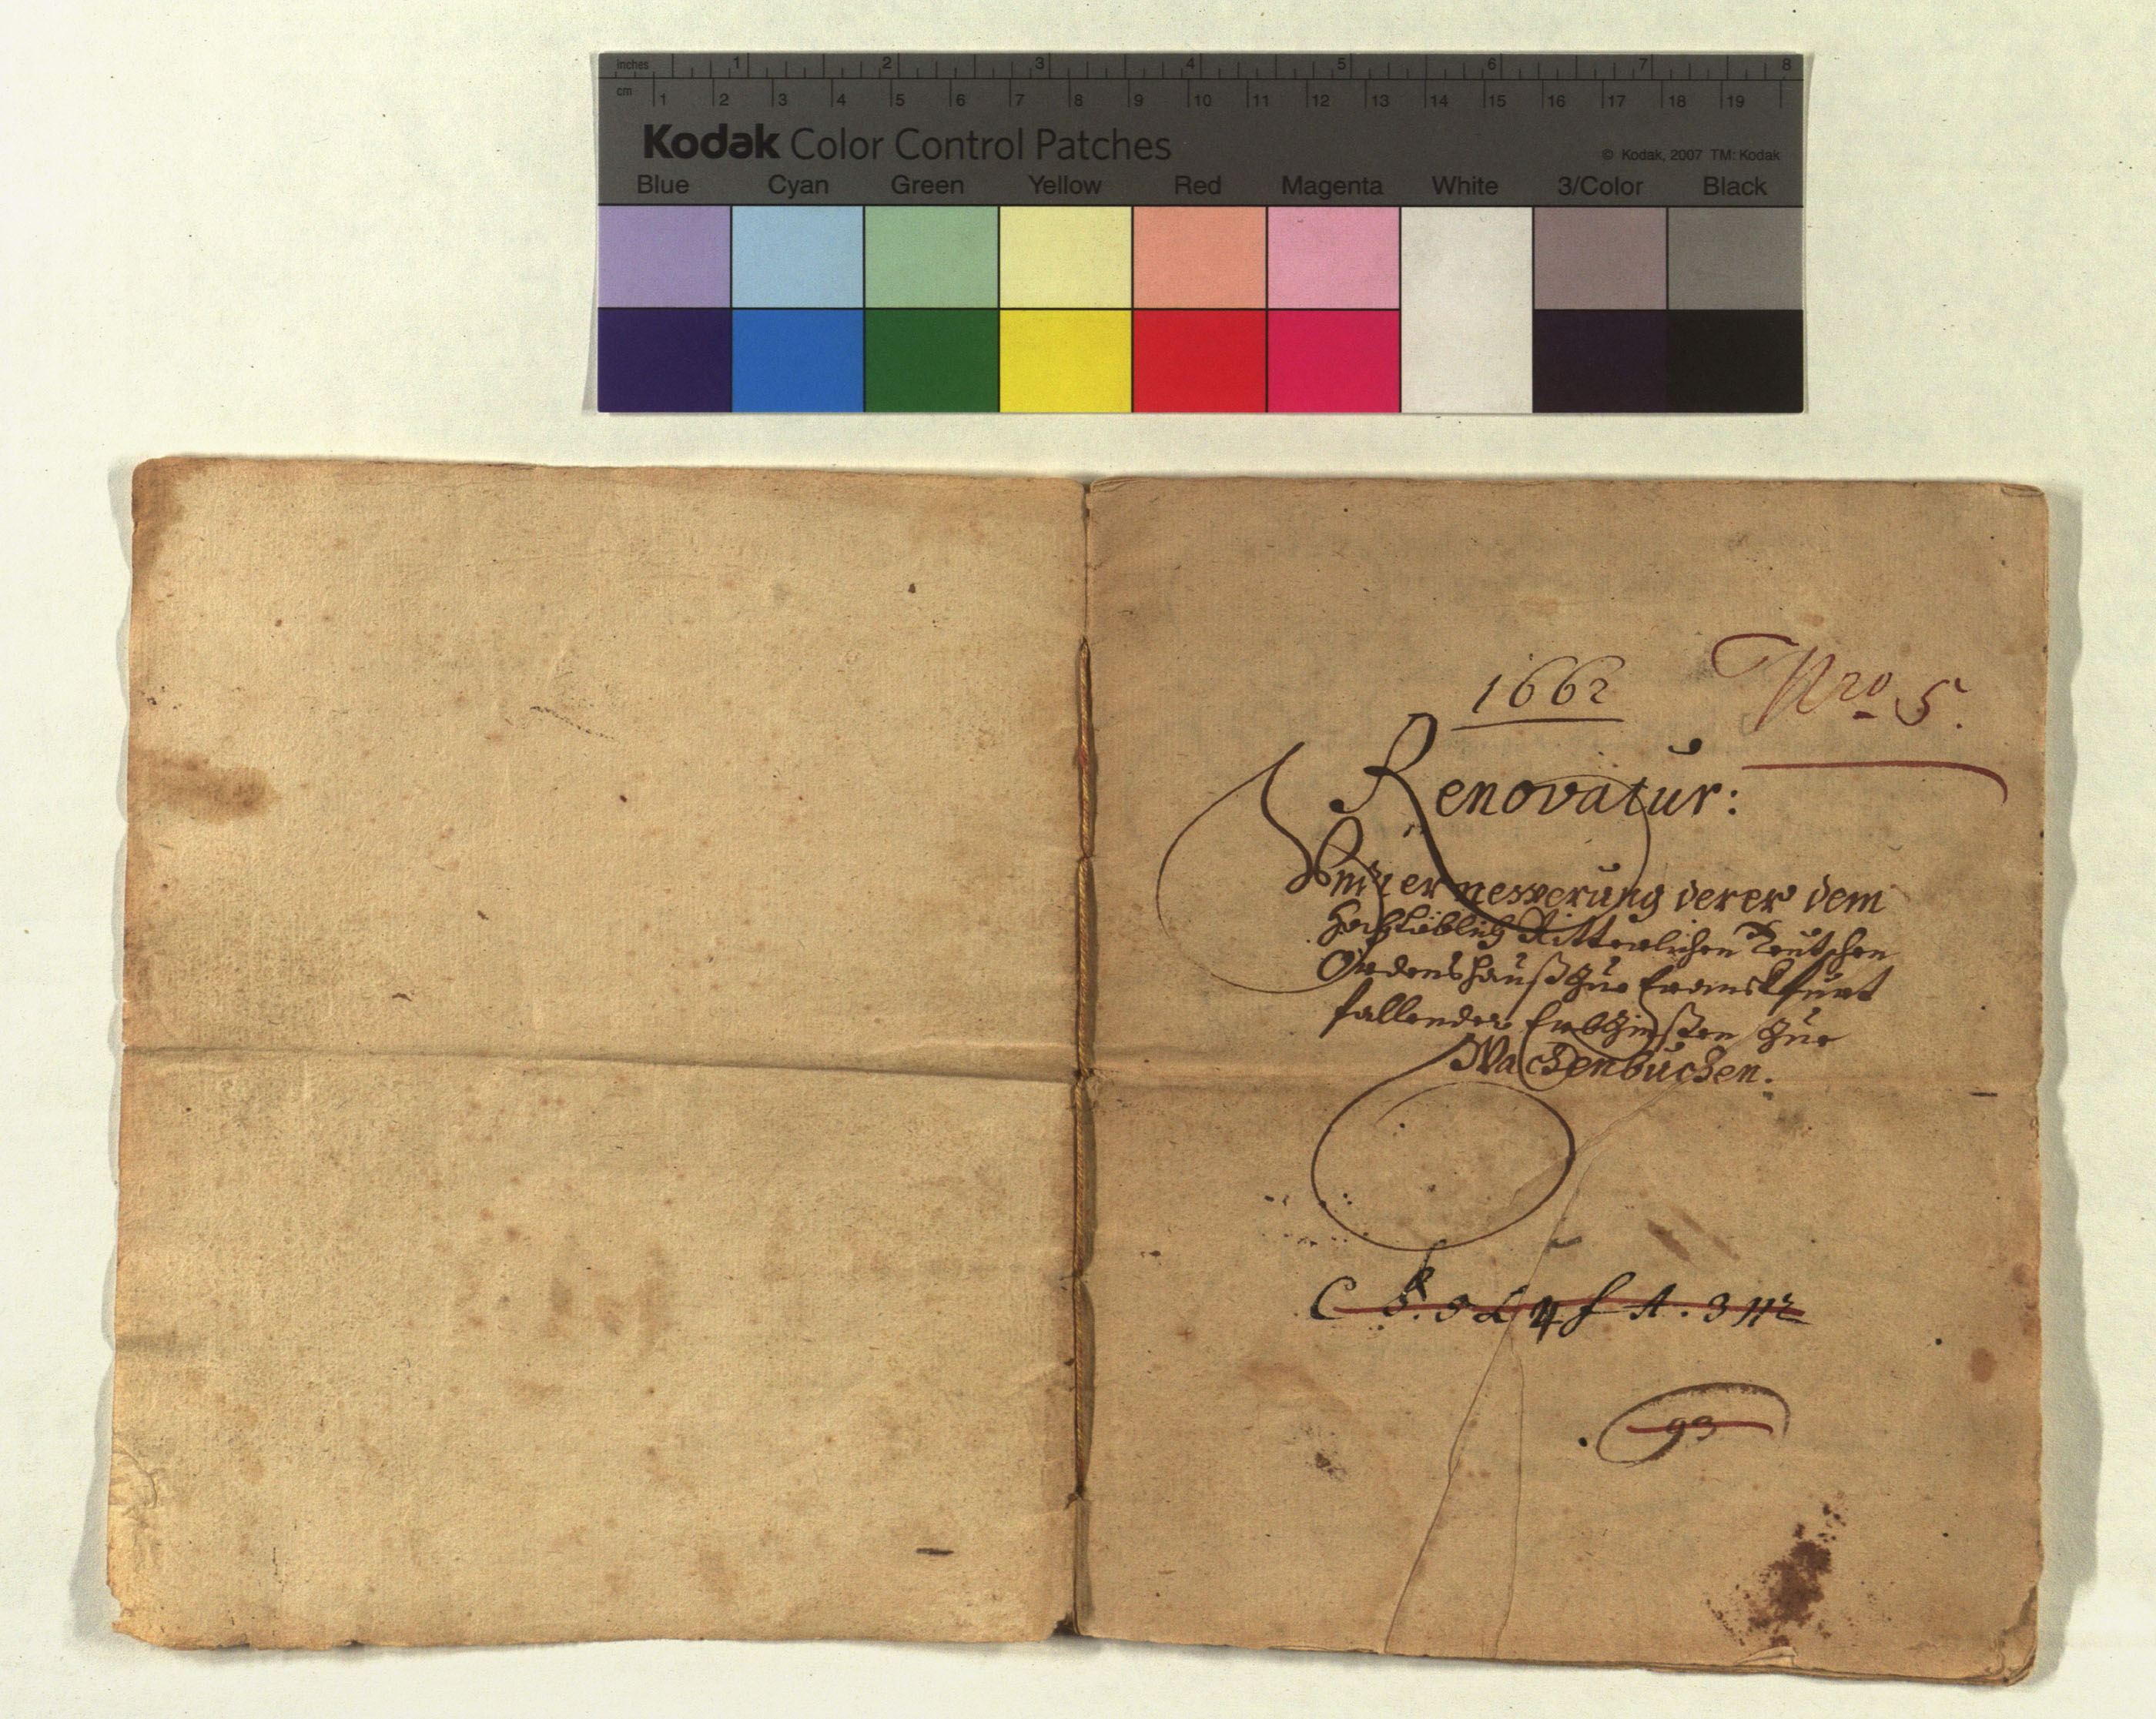 inches 1 2 3 4 5 6 7 8
cm 1 2 3 4 5 6 7 8 9 10 11 12 13 14 15 16 17 18 19
Kodak Color Control Patches
© Kodak, 2007 TM: Kodak
Blue Cyan Green Yellow Red Magenta White 3/Color Black
1662
Nro 5.
Renovatur:
derer dem
Hochlöblich Ritterlichen Teutschen
Ordenshauß zue Franckfurt
fallender Erbzinßen zue
Wachenbuchen.
93